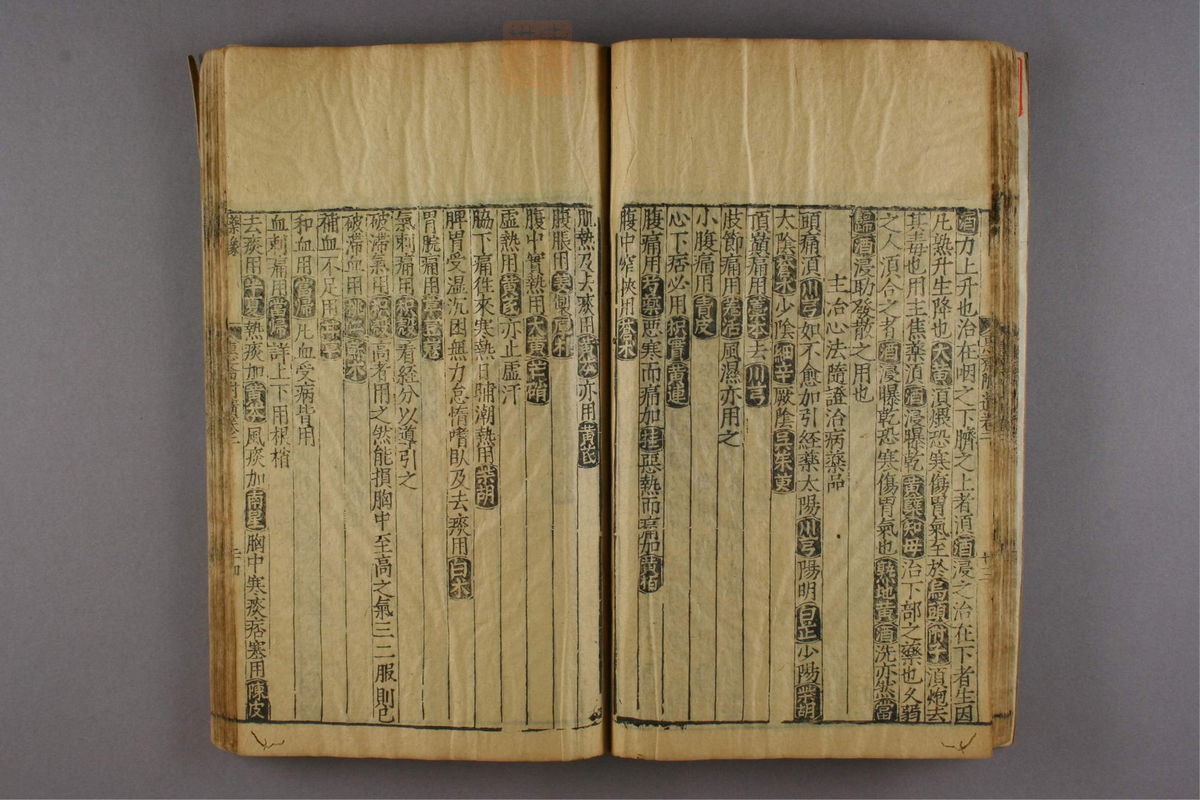 酒力上升也治在咽之下臍之上者湏酒浸之治在下者生因
凡熟升生降也大黄湏煨恐寒傷胃氣至於烏頭附子湏炮去
其毒也用主焦藥湏酒浸曝乾黄蘗知母治下部之藥也久弱
之人湏合之者酒浸曝乾恐寒傷胃氣也熟地黄酒洗亦然當
歸酒浸助發散之用也
主治心法隨證治病藥品
頭痛湏川芎如不愈加引経藥太陽川芎陽明白芷少陽柴胡
太陰蒼朮少陰細辛厥陰吳茱萸
頂巔痛用藁本去川芎
肢節痛用羗活風濕亦用之
小腹痛用青皮
心下痞必用枳實黄連
腹痛用芍藥惡寒而痛加桂惡熱而痛加黄栢
腹中窄狹用蒼朮
肌熱及去痰用黄芩亦用黄芪
腹脹用姜製厚朴
腹中實熱用大黄芒硝
虛熱用黄芪亦止虛汗
脇下痛往来寒熱日晡潮熱用柴胡
脾胃受濕沉困無力怠惰嗜卧及去痰用白朮
胃脘痛用草豆蔻
氣刺痛用枳殻看經分以導引之
破滯氣用枳殻高者用之然能損胸中至高之氣三二服則已
破滯血用桃仁蘇木
補血不足用甘草
和血用當歸凡血受病皆用
血刺痛用當歸詳上下用根梢
去痰用半夏熱痰加黄芩風痰加南星胸中寒痰痞塞用陳皮